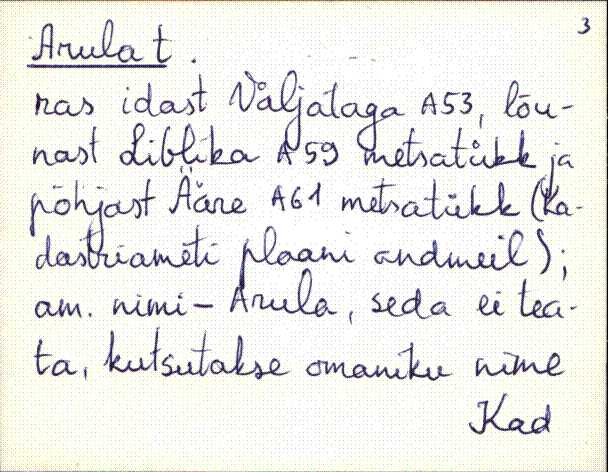 3
Arula t.
nas idast Väljataga A53, lõu-
nast Liblika A59 metsatükk ja
põhjast Ääre A61 metsatükk (Ka-
dastriameti plaani andmeil);
am. nimi – Arula, seda ei tea-
ta, kutsutakse omaniku nime
Kad